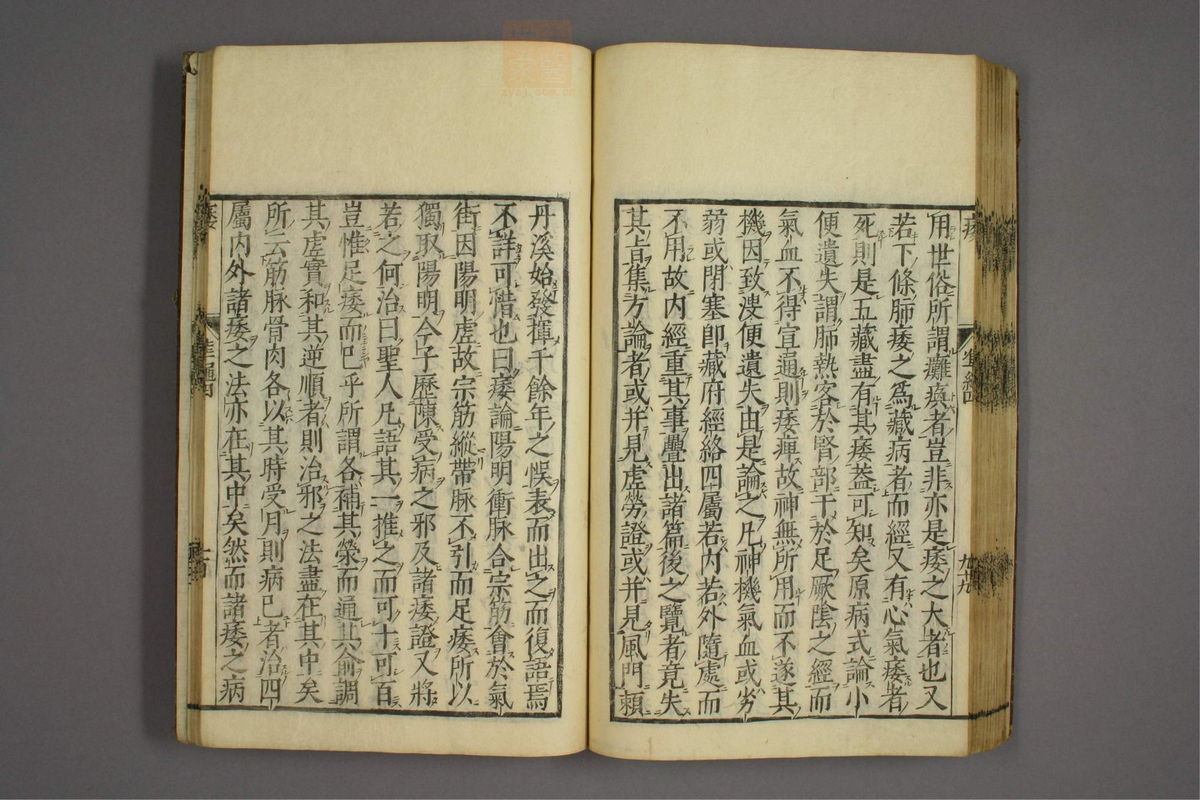 用世俗所謂癱瘓者豈非亦是痿之大者也又
若下條肺痿之爲藏病者而經又有心氣痿者
死則是五藏盡有其痿蓋可知矣原病式論小
便遺失謂肺熱客於腎部干於足厥陰之經而
氣血不得宣通則痿痺故神無所用而不遂其
機因致溲便遺失由是論之凡神機氣血或劣
弱或閉塞卽藏府經絡四屬若內若外隨處而
不用故內經重其事疊出諸篇後之覽者竟失
其旨集方論者或并見虛勞證或并見風門賴
丹溪始發揮千餘年之悞表而出之而復語焉
不詳可惜也曰痿論陽明衝脉合宗筋會於氣
街因陽明虛故宗筋縱帶脉不引而足痿所以
獨取陽明今子歷陳受病之邪及諸痿證又將
若之何治曰聖人凡語其一推之而可十可百
豈惟足痿而已乎所謂各補其榮而通其俞調
其虛實和其逆順者則治邪之法盡在其中矣
所云筋脉骨肉各以其時受月則病已者治四
屬內外諸痿之法亦在其中矣然而諸痿之病